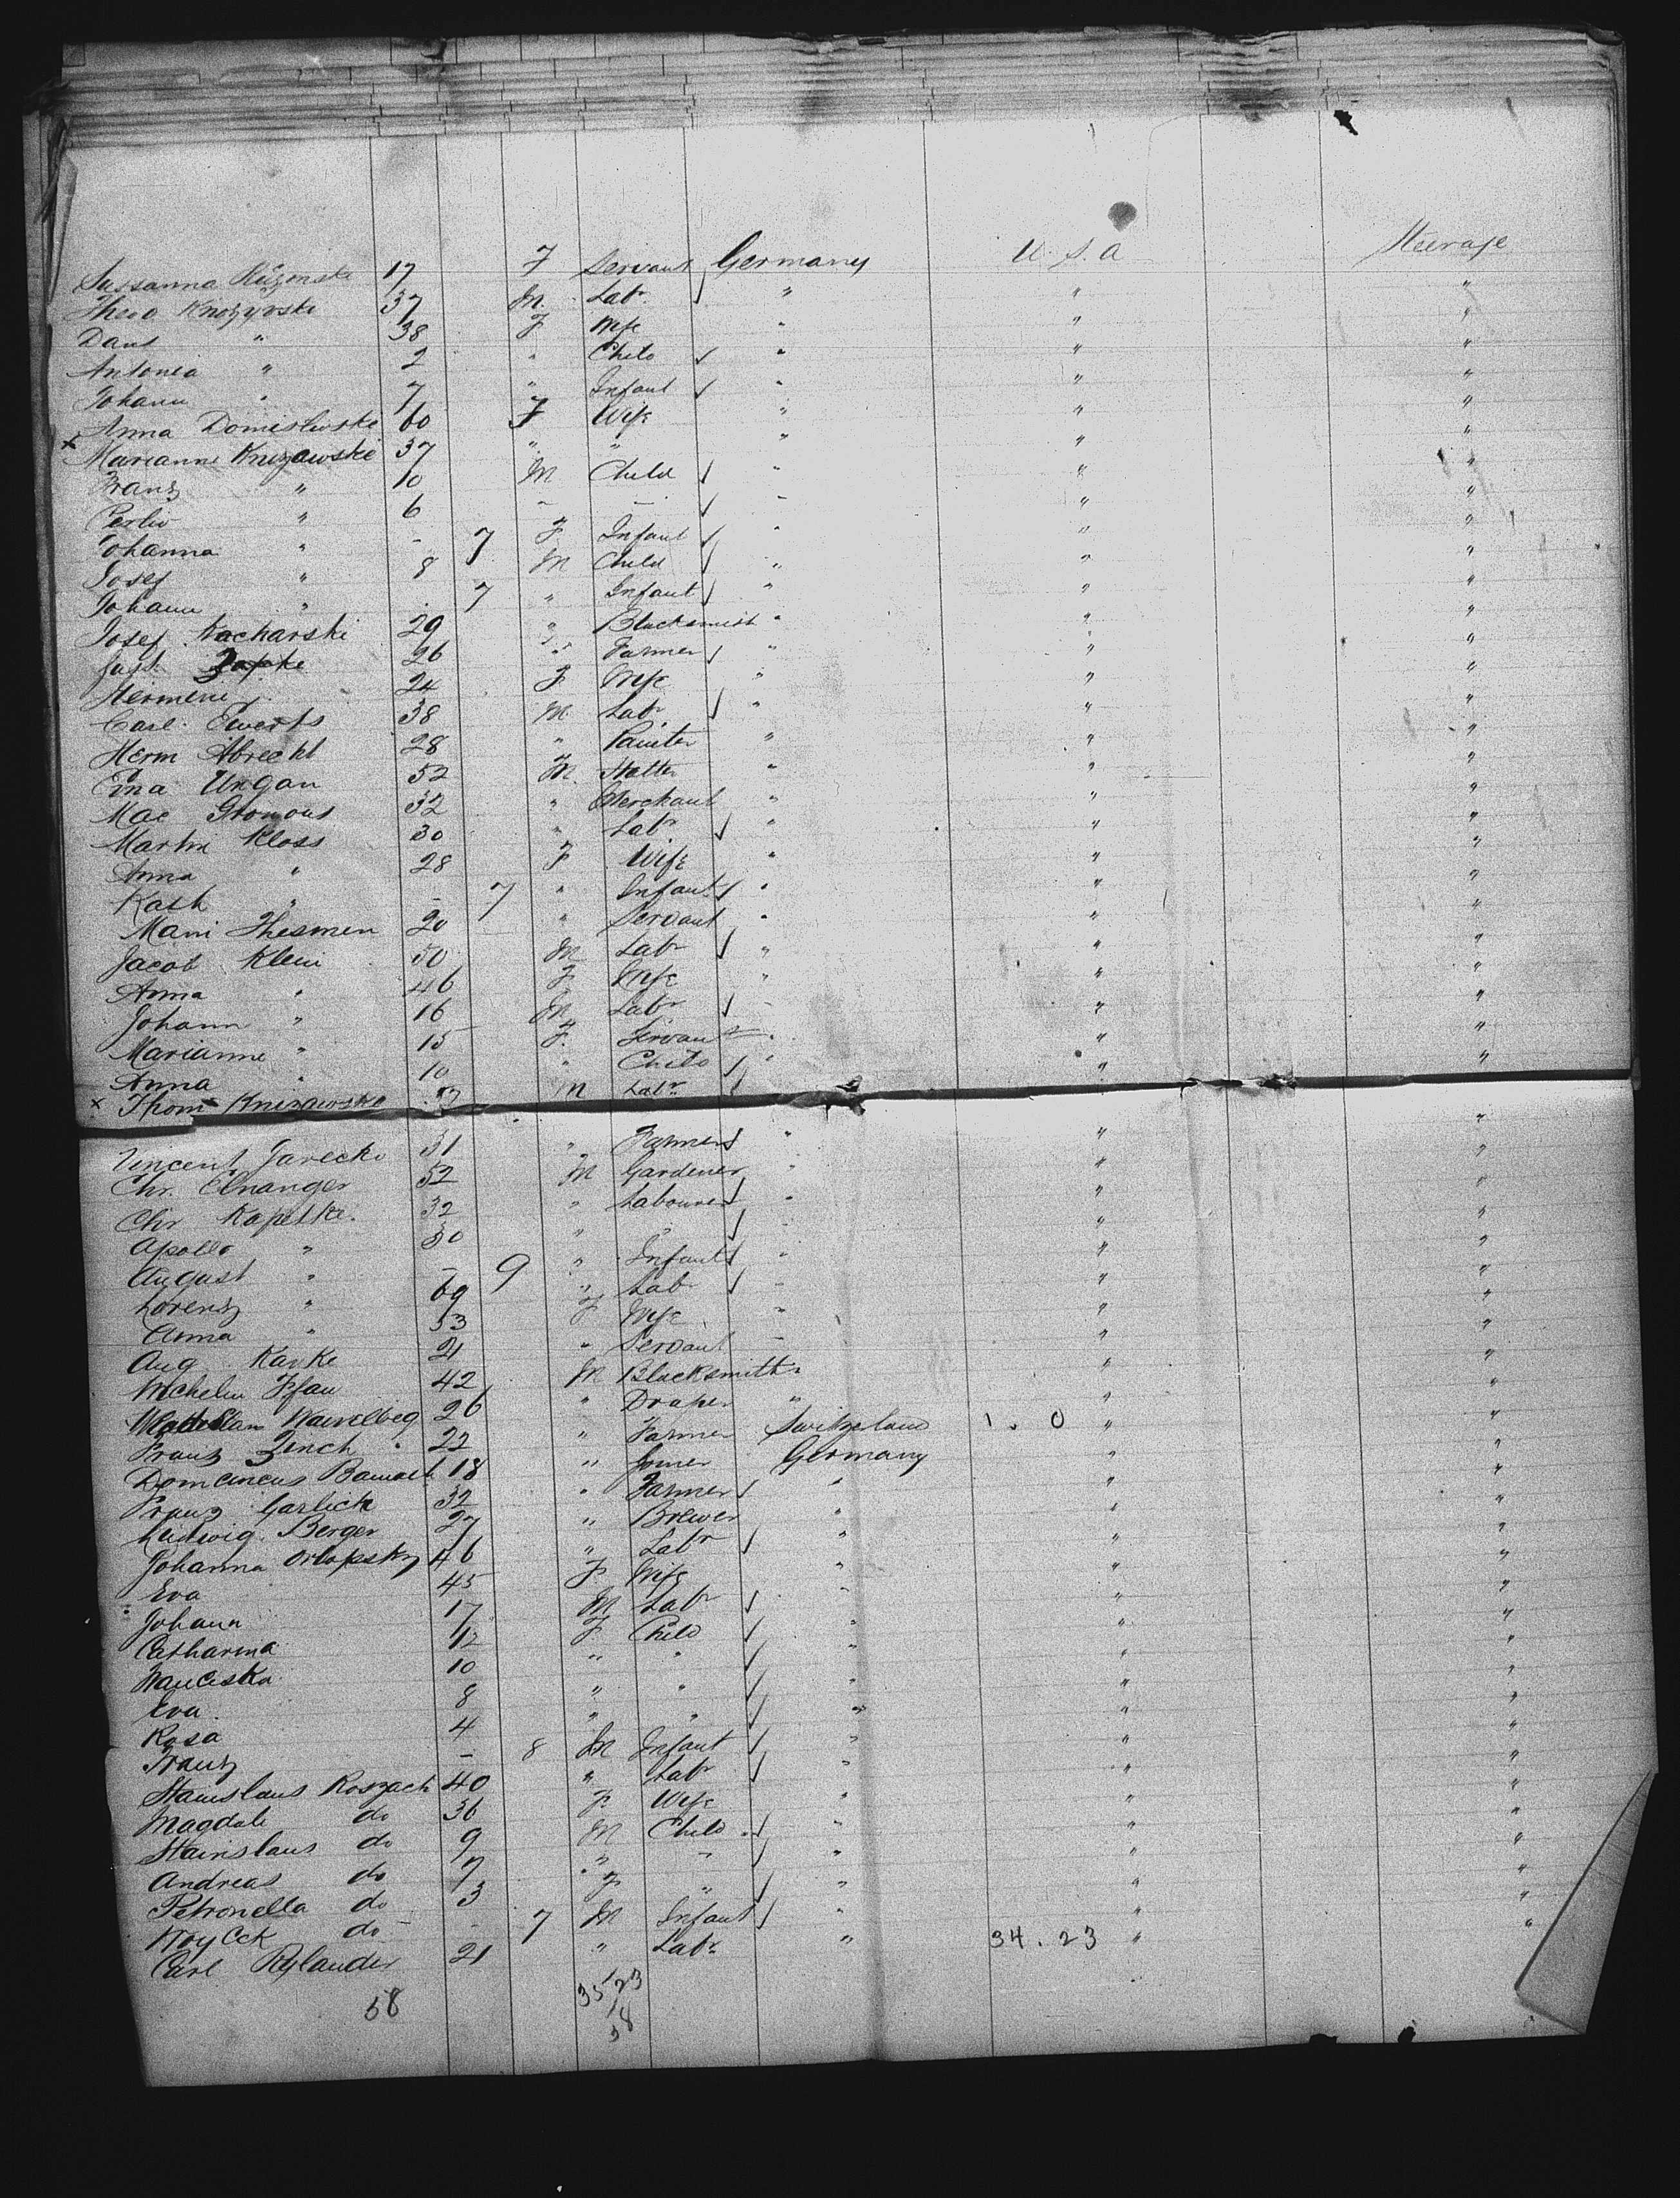 Sussanna 17 F Servant Germany U.S.A Steerage
Theod 37 M. Labr " " "
38 F Wife " " "
Antonia " 2 " Child " " "
Johann " 7 " Infant " " "
Anna Domislwski 60 F Wife " " "
x Marianne Knizawski 37 " " " " "
Franz " 10 M Child " " "
" 6 - - - " "
Johanna " - 7 F Infant " " "
Josef " 8 M Child " " "
Johann " . 7 " Infant " " "
Josef Kacharski 29 " Blacksmith " " "
26 " Farmer " " "
24 F Wife " " "
Carl Ewerts 38 M Labr " " "
Herm Abrecht 28 " Painter " " "
Ungan 52 M. Hatter " " "
Mac 32 " Merchant " " "
Martin Kloss 30 " Labr " " "
Anna " 28 F Wife " " "
Kath " - 7 " Infant " " "
Mani Thesmen 20 " Servant " " "
Jacob Klein 50 M Labr " " "
Anna " 46 F Wife " " "
Johann " 16 M Labr - " "
Marianne " 15 F. Servant " " "
Anna " 10 " Child " " "
x Thom Knizawski M Labr
Vincent Jarecko 31 " Farmer " " "
Chr. Elnanger 52 M Gardener " " "
Chr Kapitke. 32 " Labourer " " "
Apollo " 30 " " - " "
August " - 9 " Infant " " "
Lorenz " 69 " Labr - " "
Anna " 53 F Wife " " "
Aug Kanke 21 " Servant - " "
Wichelm Pfau 42 M Blacksmith " " "
26 " Draper " " "
Franz Zench 22 " Farmer Switzerland 1 . 0 " "
18 " Joiner Germany " "
Franz Garlick 32 " Farmer " " "
Ludwig Berger 27 " Brewer " " "
Johanna Orlopsky 46 " Labr " " "
Eva 45 F Wife " " "
Johann 17 M Labr - " "
Catharina 12 F Child " " "
10 " " " " "
Eva. 8 " " " " "
Rosa 4 " " " " "
Franz - 8 M Infant " " "
Stanislaus Roszach 40 " Labr " " "
Magdale do 36 F. Wife " " "
Stainslaus do 9 M Child " " "
Andreas do 7 " - " " "
Petronella do 3 F " " " "
do - 7 M Infant " " "
Carl Rylander 21 " Labr " 34 . 23 " "
58 35/23
58